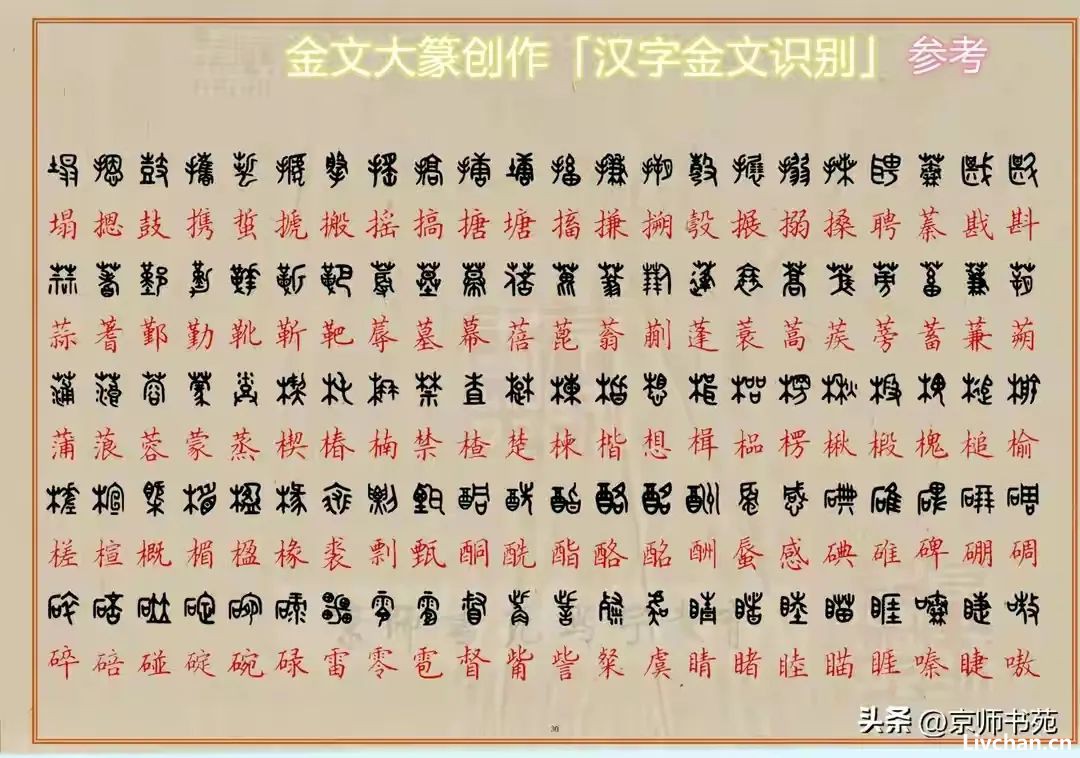 金文大篆创作「汉字金文识别」 参考
塌 摁 鼓 携 蜇 搋 搬 摇 搞 搪 塘 搐 搛 搠 彀 搌 搦 搡 聘 蓁 戡 斟
蒜 蓍 鄞 勤 靴 靳 靶 蓐 墓 幕 蓓 蓖 蓊 蒯 蓬 蓑 蒿 蒺 蒡 蓄 蒹 蒴
蒲 蒗 蓉 蒙 蒸 楔 椿 楠 禁 楂 楚 楝 楷 想 楫 榀 楞 楸 椴 槐 槌 榆
槎 楦 概 楣 楹 椽 裘 剽 甄 酮 酰 酯 酪 酩 酬 蜃 感 碘 碓 碑 硼 碉
碎 碚 碰 碇 碗 碌 雷 零 雹 督 觜 訾 粲 虞 睛 睹 睦 瞄 睚 嗪 睫 嗷
36
头条 @京师书苑
Livchan.cn